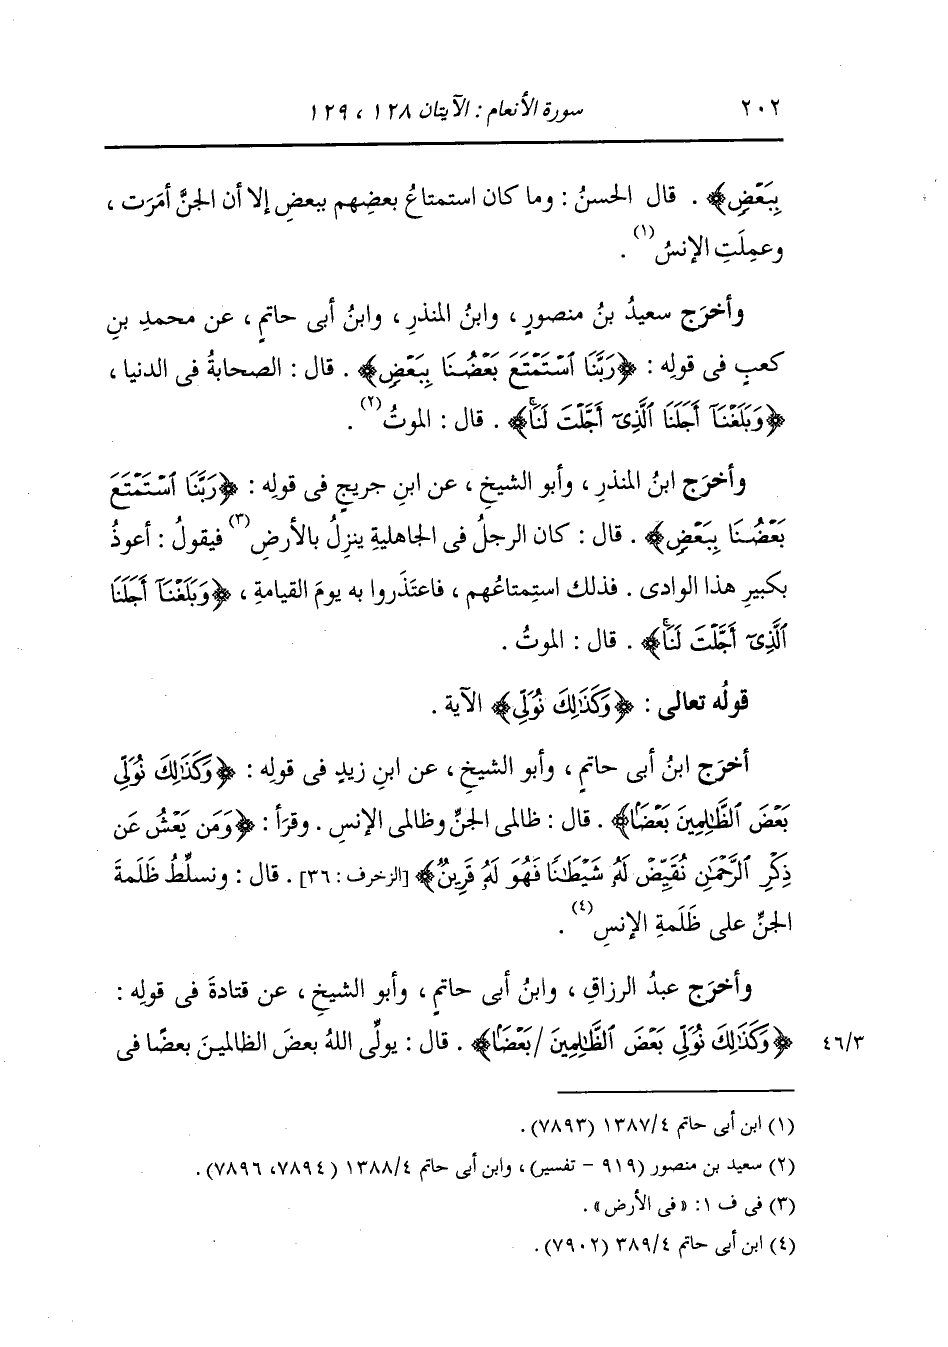 ٢٠٢ سورة الأنعام : الآيتان ١٢٨ ، ١٢٩
بِبَعْضٍ﴾ . قال الحسنُ : وما كان استمتاعُ بعضِهم ببعضٍ إلا أن الجنَّ أمَرَت ،
وعمِلَتِ الإنسُ(١) .
وأخرَج سعيدُ بنُ منصورٍ ، وابنُ المنذرِ ، وابنُ أبى حاتمٍ ، عن محمدِ بنِ
كعبٍ فى قولِه : ﴿رَبَّنَا ٱسْتَمْتَعَ بَعْضُنَا بِبَعْضٍ﴾ . قال : الصحابةُ فى الدنيا ،
﴿وَبَلَغْنَآ أَجَلَنَا ٱلَّذِىٓ أَجَّلْتَ لَنَاۚ﴾ . قال : الموتُ(٢) .
وأخرَج ابنُ المنذرِ ، وأبو الشيخِ ، عن ابنِ جريجٍ فى قولِه : ﴿رَبَّنَا ٱسْتَمْتَعَ
بَعْضُنَا بِبَعْضٍ﴾ . قال : كان الرجلُ فى الجاهليةِ ينزِلُ بالأرضِ(٣) فيقولُ : أعوذُ
بكبيرِ هذا الوادى . فذلك استِمتاعُهم ، فاعتَذَروا به يومَ القيامةِ ، ﴿وَبَلَغْنَآ أَجَلَنَا
ٱلَّذِىٓ أَجَّلْتَ لَنَاۚ﴾ . قال : الموتُ .
قولُه تعالى : ﴿وَكَذَٰلِكَ نُوَلِّى﴾ الآية .
أخرَج ابنُ أبى حاتمٍ ، وأبو الشيخِ ، عن ابنِ زيدٍ فى قولِه : ﴿وَكَذَٰلِكَ نُوَلِّى
بَعْضَ ٱلظَّٰلِمِينَ بَعْضًا﴾ . قال : ظالمى الجنِّ وظالمى الإنسِ . وقرَأ : ﴿وَمَن يَعْشُ عَن
ذِكْرِ ٱلرَّحْمَٰنِ نُقَيِّضْ لَهُۥ شَيْطَٰنًا فَهُوَ لَهُۥ قَرِينٌ﴾ [الزخرف : ٣٦] . قال : ونسلِّطُ ظَلَمةَ
الجنِّ على ظَلَمةِ الإنسِ(٤) .
وأخرَج عبدُ الرزاقِ ، وابنُ أبى حاتمٍ ، وأبو الشيخِ ، عن قتادةَ فى قولِه :
٤٦/٣ ﴿وَكَذَٰلِكَ نُوَلِّى بَعْضَ ٱلظَّٰلِمِينَ /بَعْضًا﴾ . قال : يولِّى اللهُ بعضَ الظالمينَ بعضًا فى
(١) ابن أبى حاتم ١٣٨٧/٤ (٧٨٩٣).
(٢) سعيد بن منصور (٩١٩ - تفسير) ، وابن أبى حاتم ١٣٨٨/٤ (٧٨٩٤، ٧٨٩٦).
(٣) فى ف ١: «فى الأرض» .
(٤) ابن أبى حاتم ٣٨٩/٤ (٧٩٠٢).